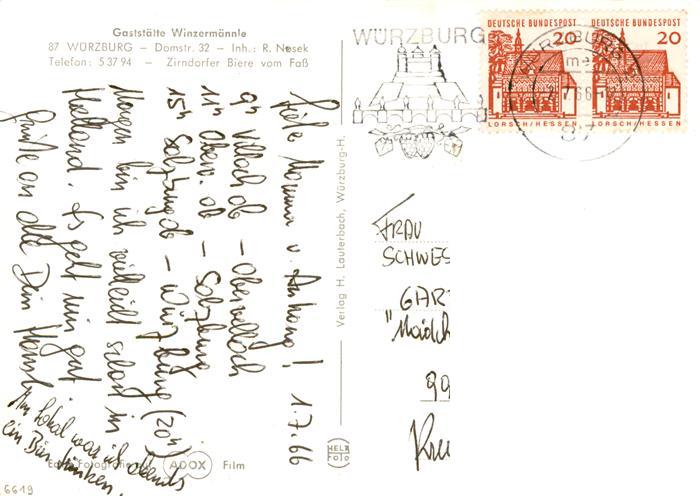 Gaststätte Winzermännle
87 WÜRZBURG – Domstr. 32 – Inh.: R. Nosek
Telefon: 5 37 94 – Zirndorfer Biere vom Faß
WÜRZBURG
DEUTSCHE BUNDESPOST
20
LORSCH/HESSEN
DEUTSCHE BUNDESPOST
20
LORSCH/HESSEN
WÜRZBURG
87
1.7.66
Mamma u. Anhang!
9h Villach ab – Obervellach
11h Oberv. ab – Salzburg
15h Salzburg ab – Würzburg (20h)
Morgen bin ich vielleicht schon in
Holland. Es geht mir gut
Grüße an alle Dein
Im Lokal war ich abends
ein Bier trinken.
Verlag H. Lauterbach, Würzburg-H.
FRAU
SCHWES
GÄR
"Mädch
99
HELA
Foto
ADOX Film
6619